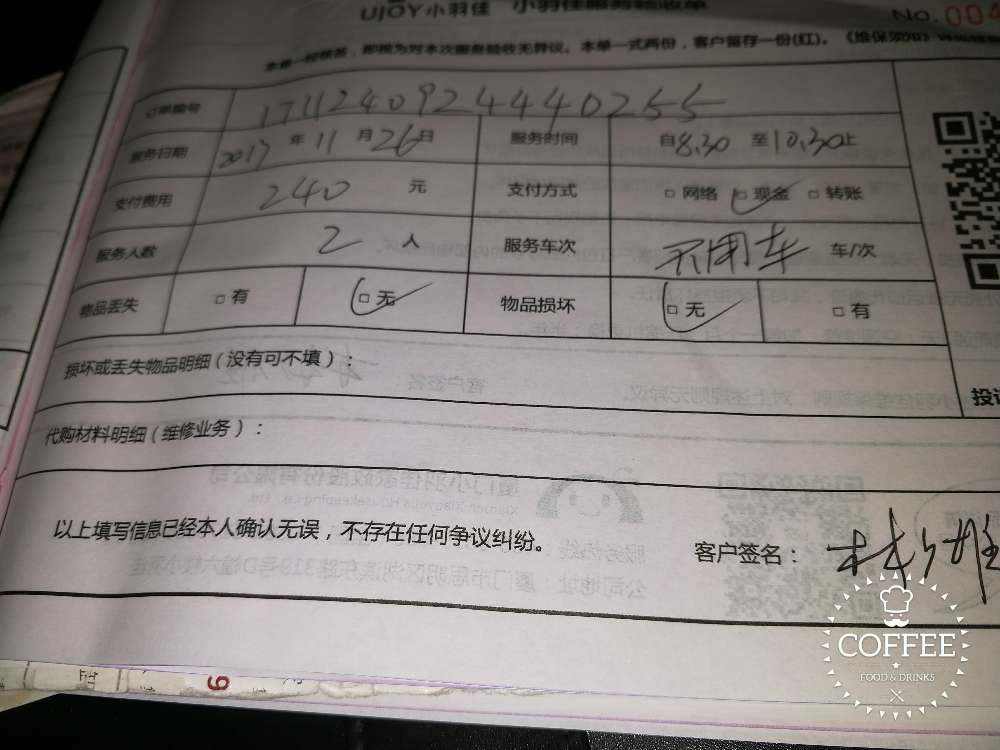 UJOY小羽佳 小羽佳服务验收单
No.004
本单一经核签，即视为对本次服务验收无异议。本单一式两份，客户留存一份(红)。
订单编号 1711240924440255
服务日期 2017年11月26日 服务时间 自8.30至10.30止
支付费用 240元 支付方式 □网络 □现金 □转账
服务人数 2人 服务车次 不用车 车/次
物品丢失 □有 □无 物品损坏 □无 □有
损坏或丢失物品明细（没有可不填）：
代购材料明细（维修业务）：
投
以上填写信息已经本人确认无误，不存在任何争议纠纷。
客户签名：
COFFEE
FOOD & DRINKS
9